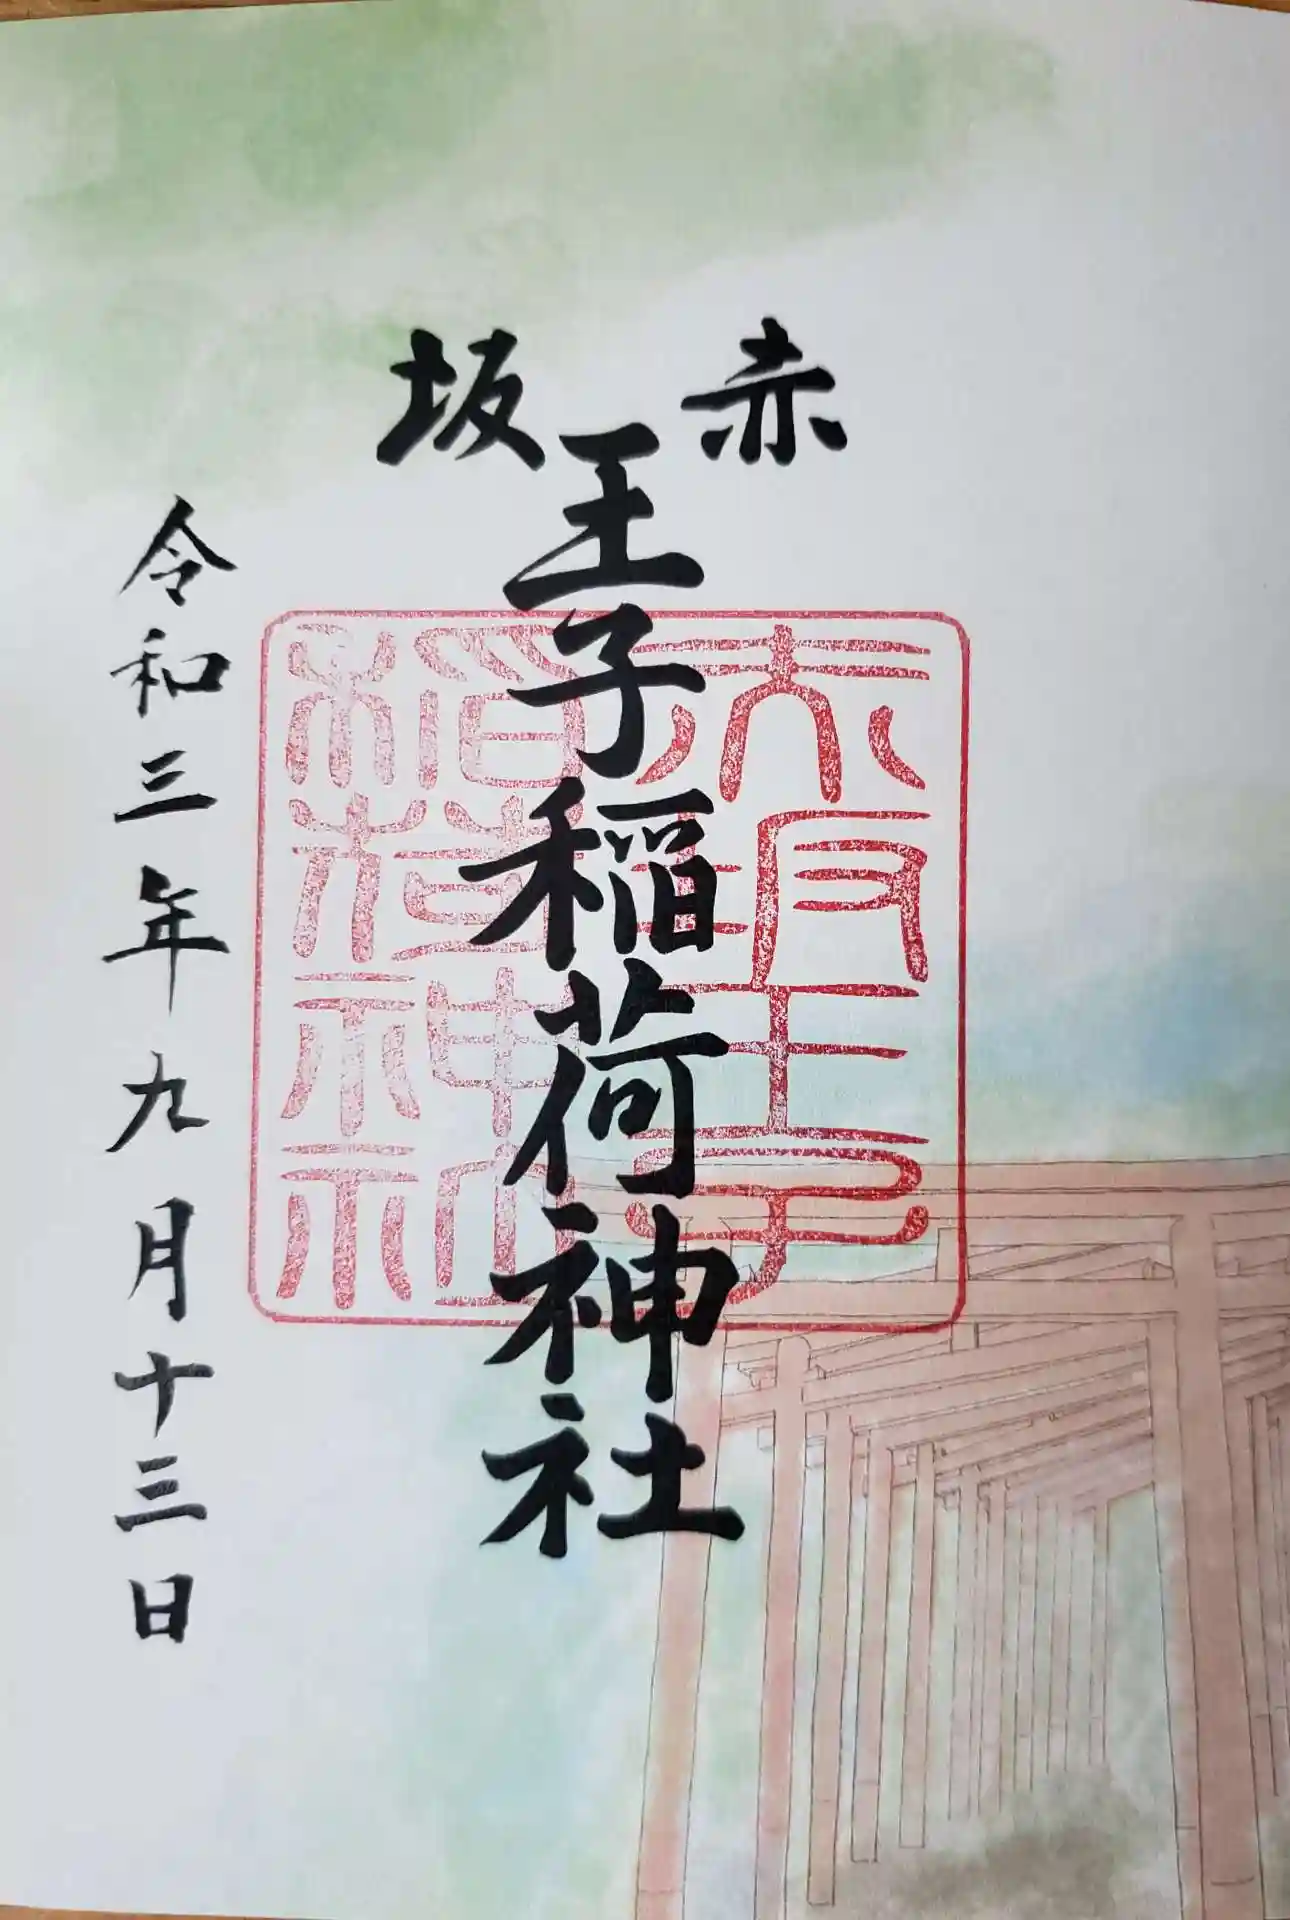 赤坂
王子稲荷神社
令和三年九月十三日
赤坂王子
稲荷神社